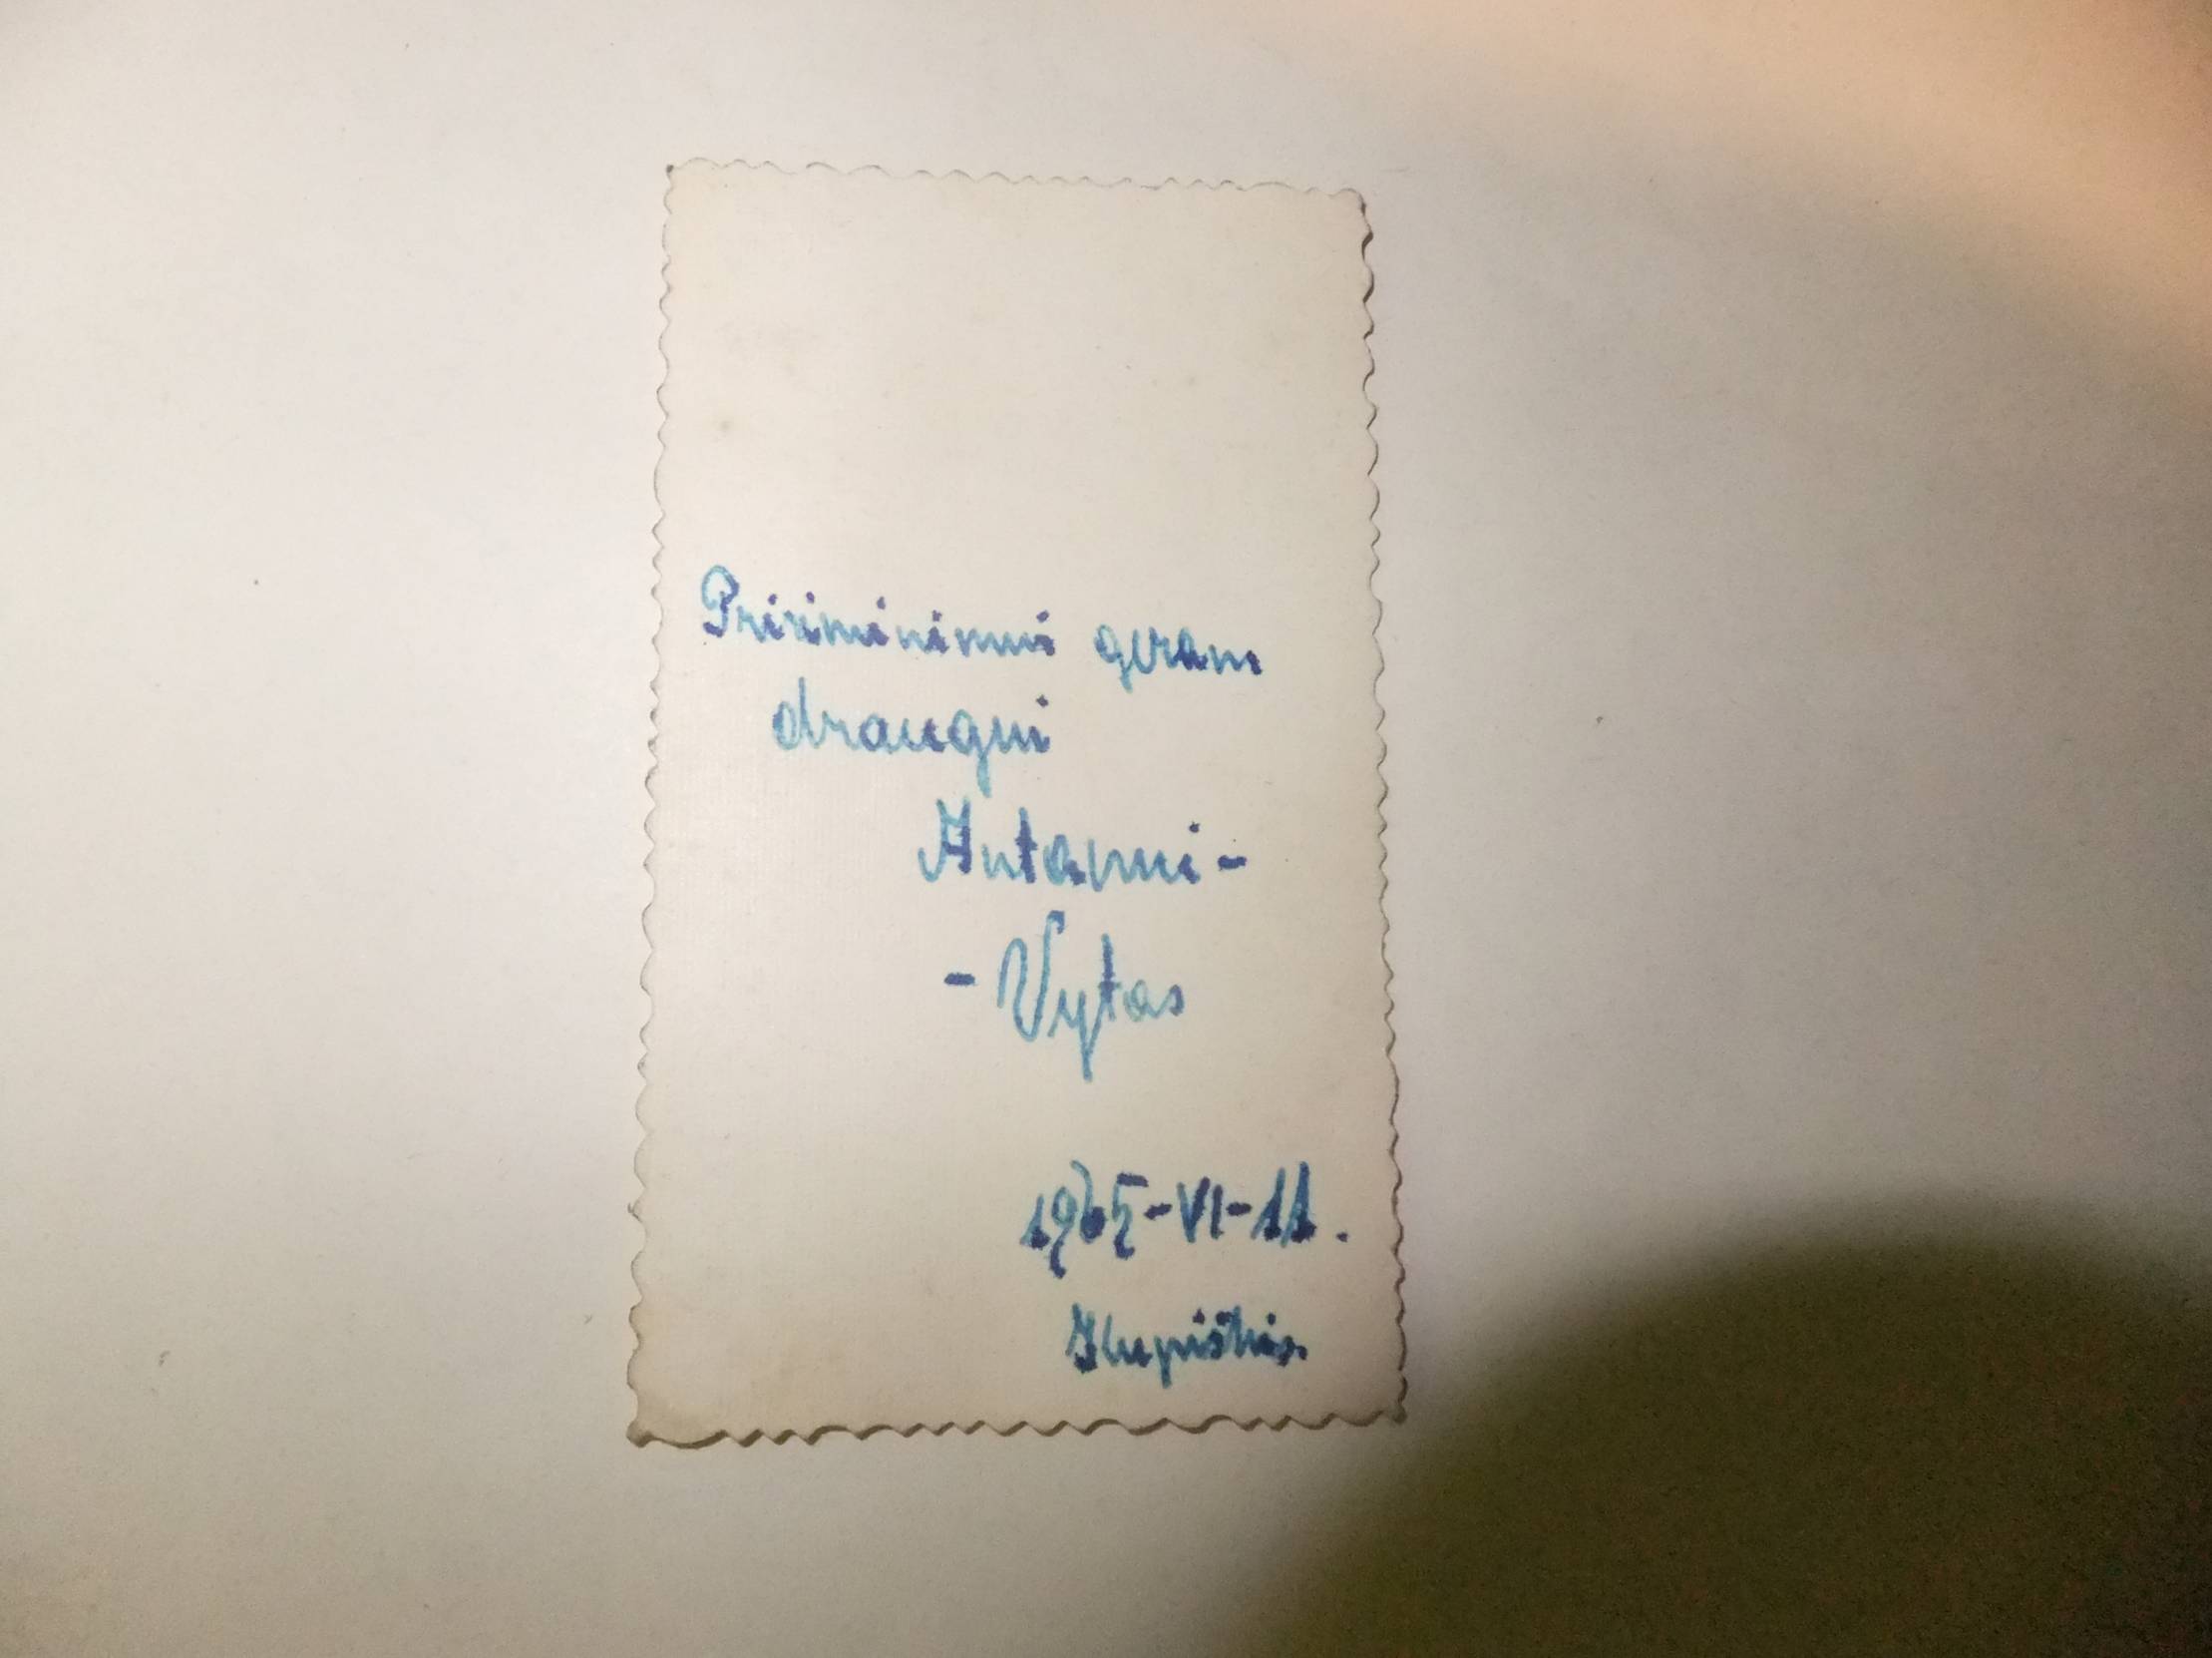 Prisiminimui geram
draugui
Antanui -
- Vytas
1965-VI-11.
Kupiškis.